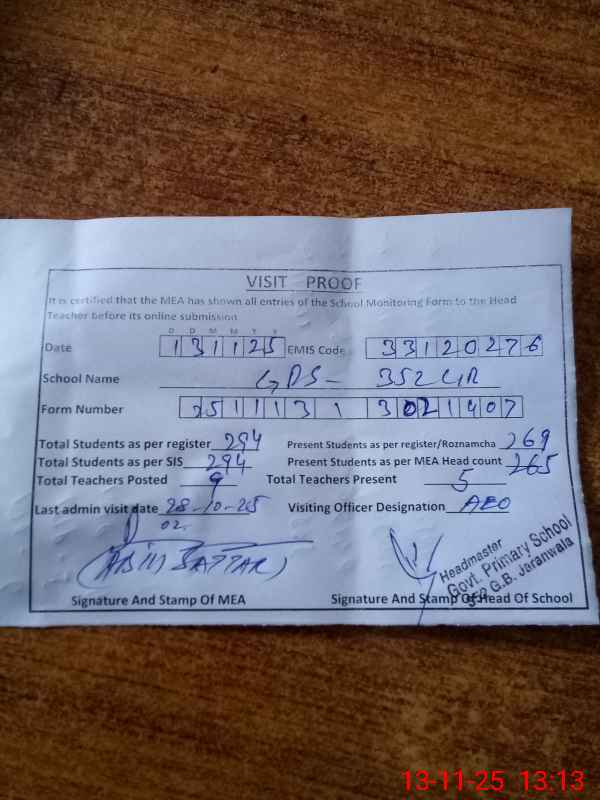 VISIT PROOF
It is certified that the MEA has shown all entries of the School Monitoring Form to the Head
Teacher before its online submission
D D M M Y Y
Date 131125 EMIS Code 33120276
School Name GPS - 352 GB
Form Number 251113 1 3021407
Total Students as per register 294 Present Students as per register/Roznamcha 269
Total Students as per SIS 294 Present Students as per MEA Head count 265
Total Teachers Posted 9 Total Teachers Present 5
Last admin visit date 28-10-25 Visiting Officer Designation AEO
02.
SATTAR)
Headmaster
Govt. Primary School
352 G.B. Jaranwala
Signature And Stamp Of MEA Signature And Stamp Of Head Of School
13-11-25 13:13